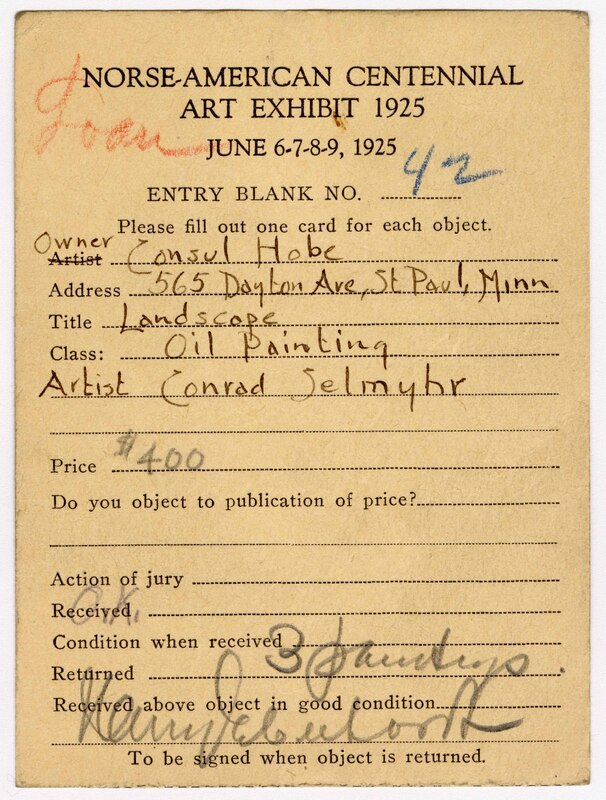 NORSE-AMERICAN CENTENNIAL
ART EXHIBIT 1925
Loan
JUNE 6-7-8-9, 1925
ENTRY BLANK NO. 42
Please fill out one card for each object.
Owner
Artist Consul Hobe
Address 565 Dayton Ave, St Paul, Minn
Title Landscape
Class: Oil Painting
Artist Conrad Selmyhr
Price $400
Do you object to publication of price?
Action of jury
Received O.K.
Condition when received 3 paintings.
Returned
Received above object in good condition
Harry
To be signed when object is returned.